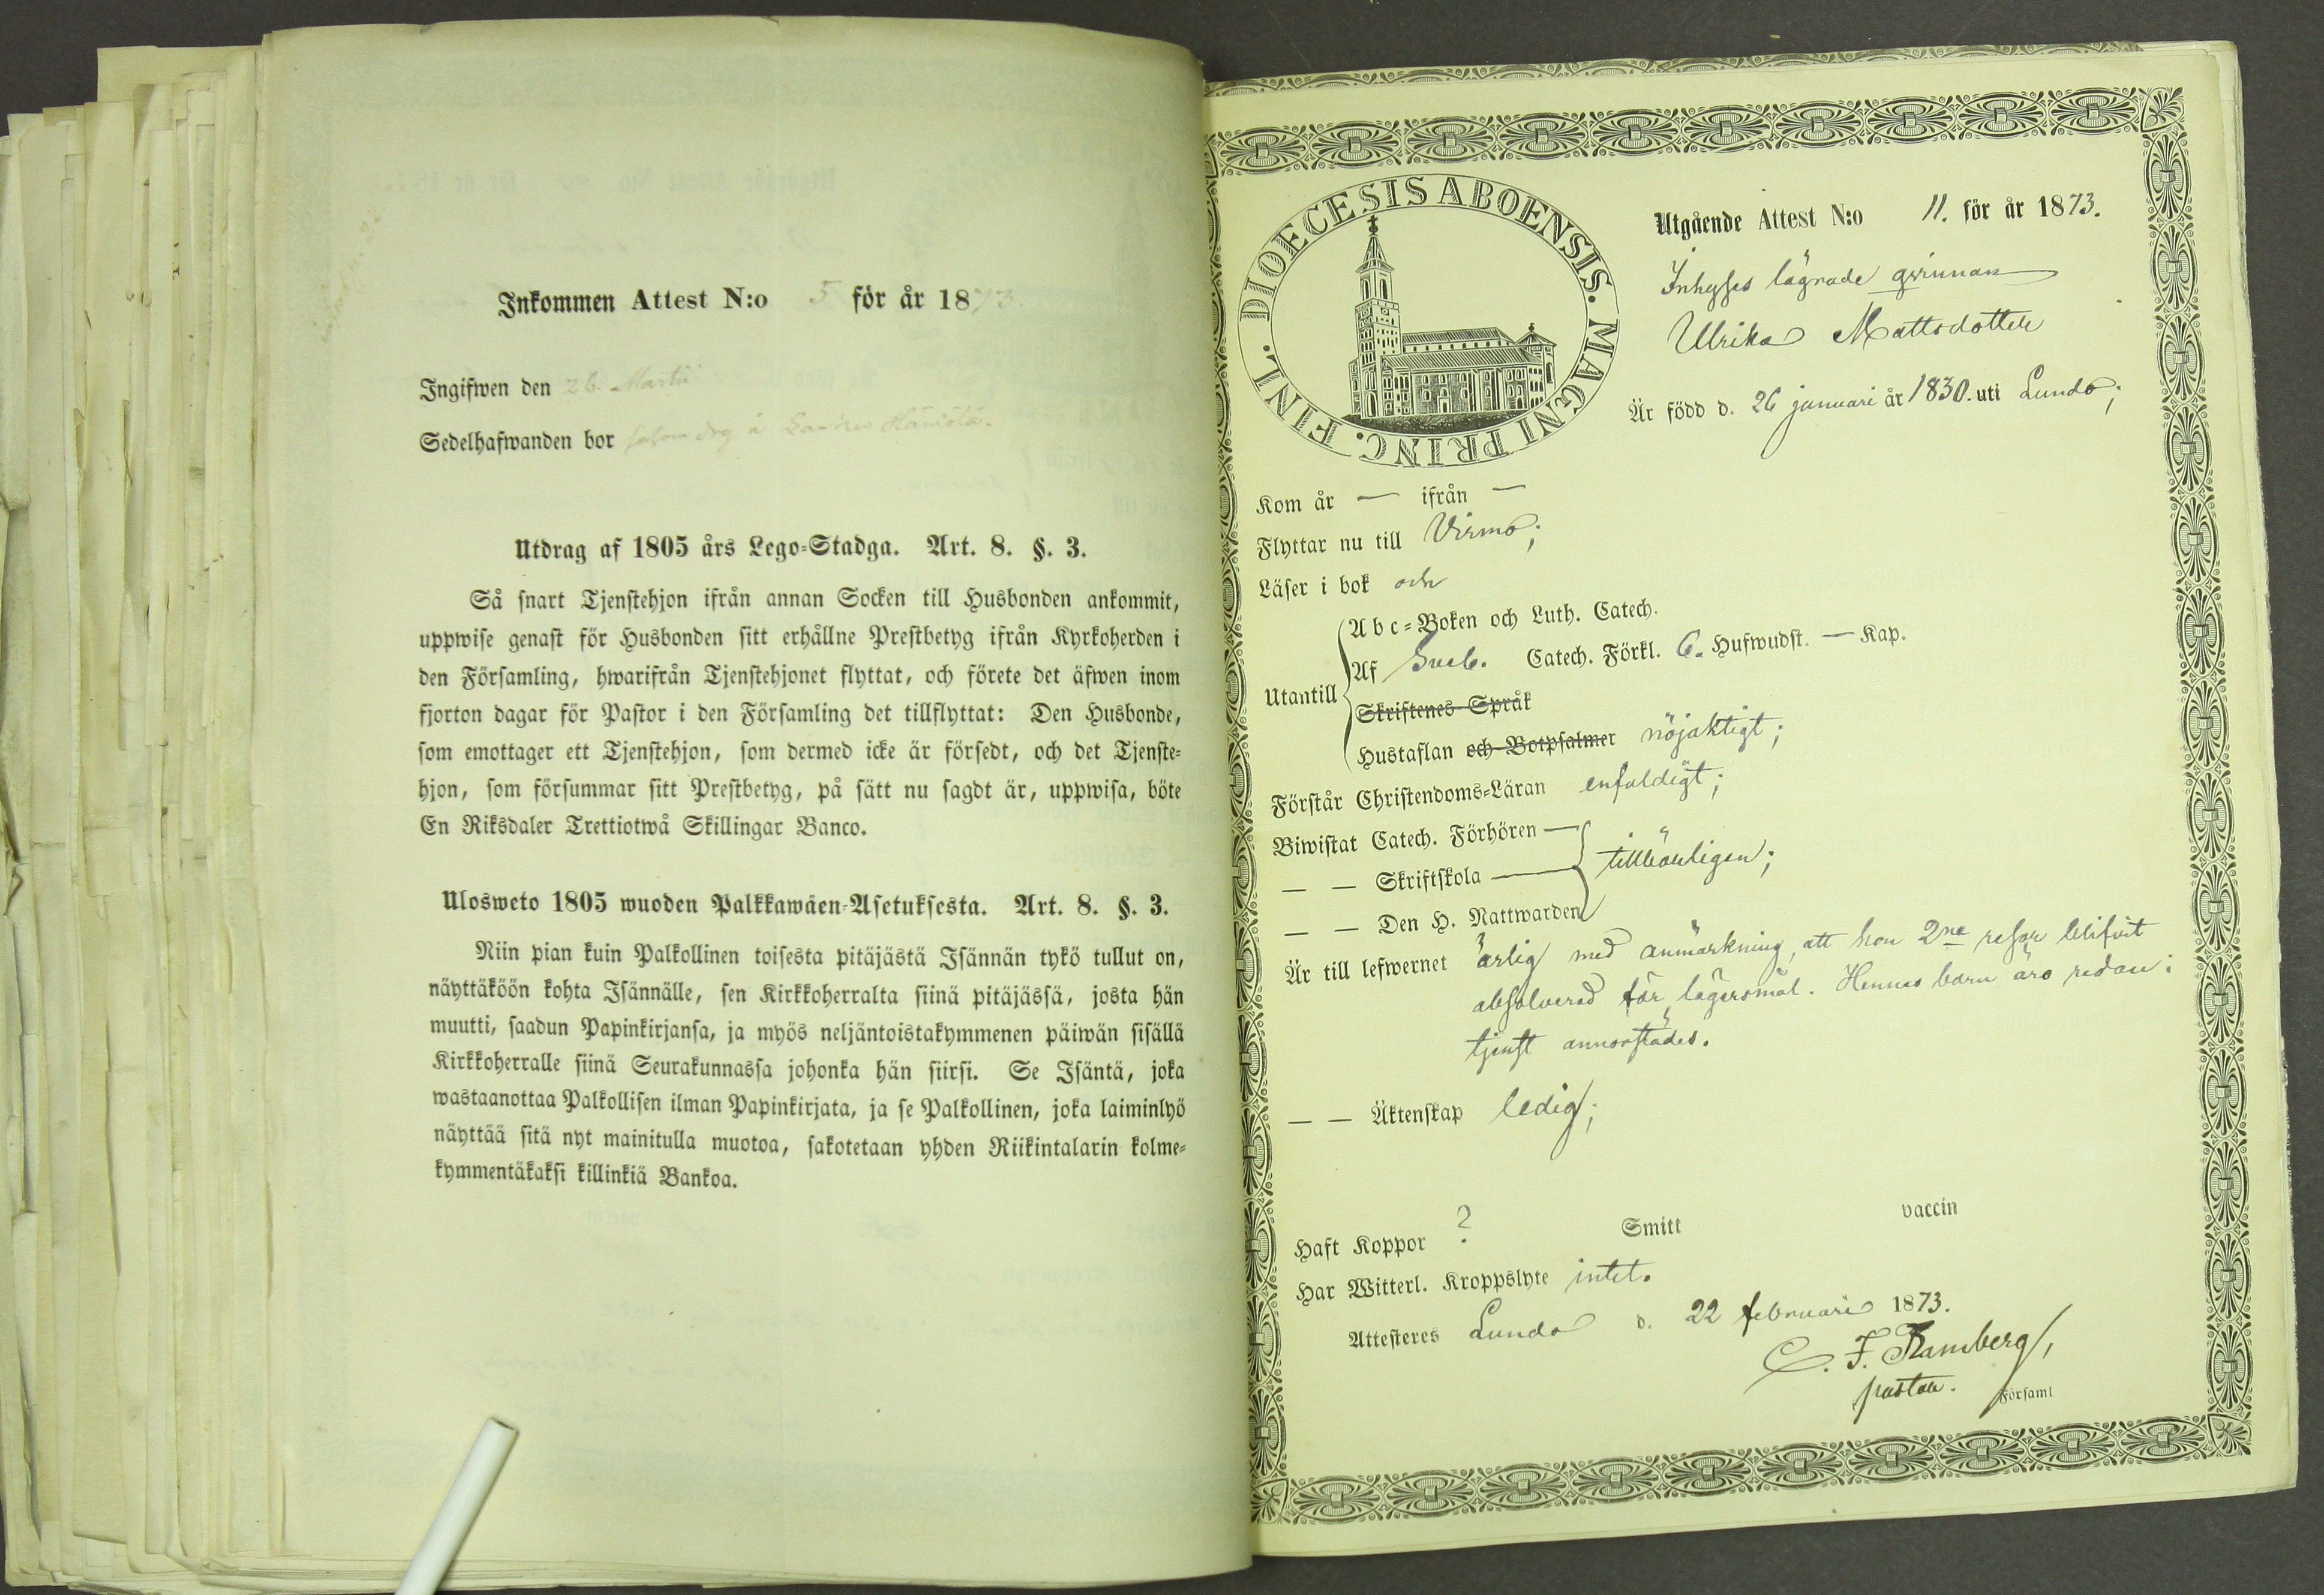 Inkommen Attest N:o 5 för år 1873.
Ingifwen den 26. Martii
Sedelhafwanden bor
Utdrag af 1805 års Lego-Stadga. Art. 8. §. 3.
Så snart Tjenstehjon ifrån annan Socken till Husbonden ankommit,
uppwise genast för Husbonden sitt erhållne Prestbetyg ifrån Kyrkoherden i
den Församling, hwarifrån Tjenstehjonet flyttat, och förete det äfwen inom
fjorton dagar för Pastor i den Församling det tillflyttat: Den Husbonde,
som emottager ett Tjenstehjon, som dermed icke är försedt, och det Tjenste-
hjon, som försummar sitt Prestbetyg, på sätt nu sagdt är, uppwisa, böte
En Riksdaler Trettiotwå Skillingar Banco.
Ulosweto 1805 wuoden Palkkawäen-Asetuksesta. Art. 8. §. 3.
Niin pian kuin Palkollinen toisesta pitäjästä Isännän tykö tullut on,
näyttäköön kohta Isännälle, sen Kirkkoherralta siinä pitäjässä, josta hän
muutti, saadun Papinkirjansa, ja myös neljäntoistakymmenen päiwän sisällä
Kirkkoherralle siinä Seurakunnassa johonka hän siirsi. Se Isäntä, joka
wastaanottaa Palkollisen ilman Papinkirjata, ja se Palkollinen, joka laiminlyö
näyttää sitä nyt mainitulla muotoa, sakotetaan yhden Riikintalarin kolme-
kymmentäkaksi killinkiä Bankoa.
DIOECESIS ABOENSIS. MAGNI PRINC. FINL.
Utgående Attest N:o 11. för år 1873.
Inhyses lägrade qvinnan
Ulrika Mattsdotter
Är född d. 26 januari år 1830. uti Lundo;
Kom år — ifrån —
Flyttar nu till Virmo;
Läser i bok och
Utantill
Abc-Boken och Luth. Catech.
Af Sveb. Catech. Förkl. 6. Hufwudst. — Kap.
Skriftenes Språk
Hustaflan och Botpsalmer nöjaktigt;
Förstår Christendoms-Läran enfaldigt;
Biwistat Catech. Förhören —
— — Skriftskola — tillbörligen;
— — Den H. Nattwarden
Är till lefwernet ärlig med anmärkning, att hon 2ne resor blifvit
absolverad för lägersmål. Hennes barn äro redan i
tjenst annorstädes.
— — Äktenskap ledig;
Haft Koppor ? Smitt vaccin
Har Witterl. Kroppslyte intet.
Attesteres Lundo d. 22 februari 1873.
C. F. Ramberg,
pastor. Församl